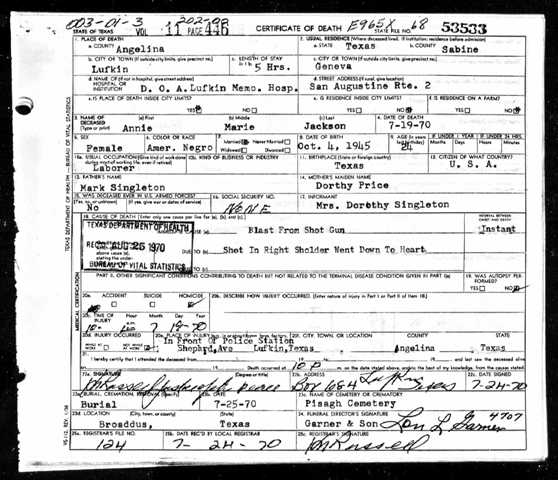 003-01-3 202-02
STATE OF TEXAS VOL 11 PAGE 446 CERTIFICATE OF DEATH E965X 68 STATE FILE NO. 53533
1. PLACE OF DEATH 2. USUAL RESIDENCE (Where deceased lived. If institution: residence before admission)
a. COUNTY Angelina a. STATE Texas b. COUNTY Sabine
b. CITY OR TOWN (If outside city limits, give precinct no.) c. LENGTH OF STAY c. CITY OR TOWN (If outside city limits, give precinct no.)
Lufkin 5 Hrs. Geneva
d. NAME OF (If not in hospital, give street address) HOSPITAL OR INSTITUTION d. STREET ADDRESS
D. O. A. Lufkin Memo. Hosp. San Augustine Rte. 2
e. IS PLACE OF DEATH INSIDE CITY LIMITS? YES NO e. IS RESIDENCE INSIDE CITY LIMITS? YES NO f. IS RESIDENCE ON A FARM? YES NO
3. NAME OF DECEASED (Type or print) (a) First (b) Middle (c) Last 4. DATE OF DEATH
Annie Marie Jackson 7-19-70
5. SEX 6. COLOR OR RACE 7. Married Never Married Widowed Divorced 8. DATE OF BIRTH 9. AGE IF UNDER 1 YEAR IF UNDER 24 HRS.
Female Amer. Negro Oct. 4, 1945 24 Months Days Hours Min.
10a. USUAL OCCUPATION (Give kind of work done 10b. KIND OF BUSINESS OR INDUSTRY 11. BIRTHPLACE (State or foreign country) 12. CITIZEN OF WHAT COUNTRY?
Laborer Texas U. S. A.
13. FATHER'S NAME 14. MOTHER'S MAIDEN NAME
Mark Singleton Dorthy Price
15. WAS DECEASED EVER IN U.S. ARMED FORCES? 16. SOCIAL SECURITY NO. 17. INFORMANT
(Yes, no, or unknown) (If yes, give war or dates of service)
No NONE Mrs. Dorethy Singleton
18. CAUSE OF DEATH (Enter only one cause per line for (a), (b), and (c).) INTERVAL BETWEEN ONSET AND DEATH
TEXAS DEPARTMENT OF HEALTH Blast From Shot Gun Instant
REC AUG 25 1970 DUE TO (b) Shot In Right Sholder Went Down To Heart
BUREAU OF VITAL STATISTICS DUE TO (c)
PART II. OTHER SIGNIFICANT CONDITIONS CONTRIBUTING TO DEATH BUT NOT RELATED TO THE TERMINAL DISEASE CONDITION GIVEN IN PART I(a) 19. WAS AUTOPSY PERFORMED? YES NO
20a. ACCIDENT SUICIDE HOMICIDE 20b. DESCRIBE HOW INJURY OCCURRED. (Enter nature of injury in Part I or Part II of item 18)
20c. TIME OF INJURY Hour Month Day Year
7 19-70
20d. INJURY OCCURRED 20e. PLACE OF INJURY 20f. CITY, TOWN, OR LOCATION COUNTY STATE
In Front Of Police Station
Shephard Ave Lufkin, Texas Angelina Texas
21. I hereby certify that I attended the deceased from 19 to 19
Death occurred at 10 P m. on the date stated above, and to the best of my knowledge, from the causes stated.
22a. SIGNATURE (Degree or title) 22b. ADDRESS 22c. DATE SIGNED
Box 684 Lufkin Texas 7-24-70
23a. BURIAL, CREMATION, REMOVAL (Specify) 23b. DATE 23c. NAME OF CEMETERY OR CREMATORY
Burial 7-25-70 Pisagh Cemetery
23d. LOCATION (City, town, or county) (State) 24. FUNERAL DIRECTOR'S SIGNATURE
Broaddus, Texas Garner & Son Lon L Garner 4707
25a. REGISTRAR'S FILE NO. 25b. DATE REC'D BY LOCAL REGISTRAR 25c. REGISTRAR'S SIGNATURE
124 7-24-70
TEXAS DEPARTMENT OF HEALTH - BUREAU OF VITAL STATISTICS
MEDICAL CERTIFICATION